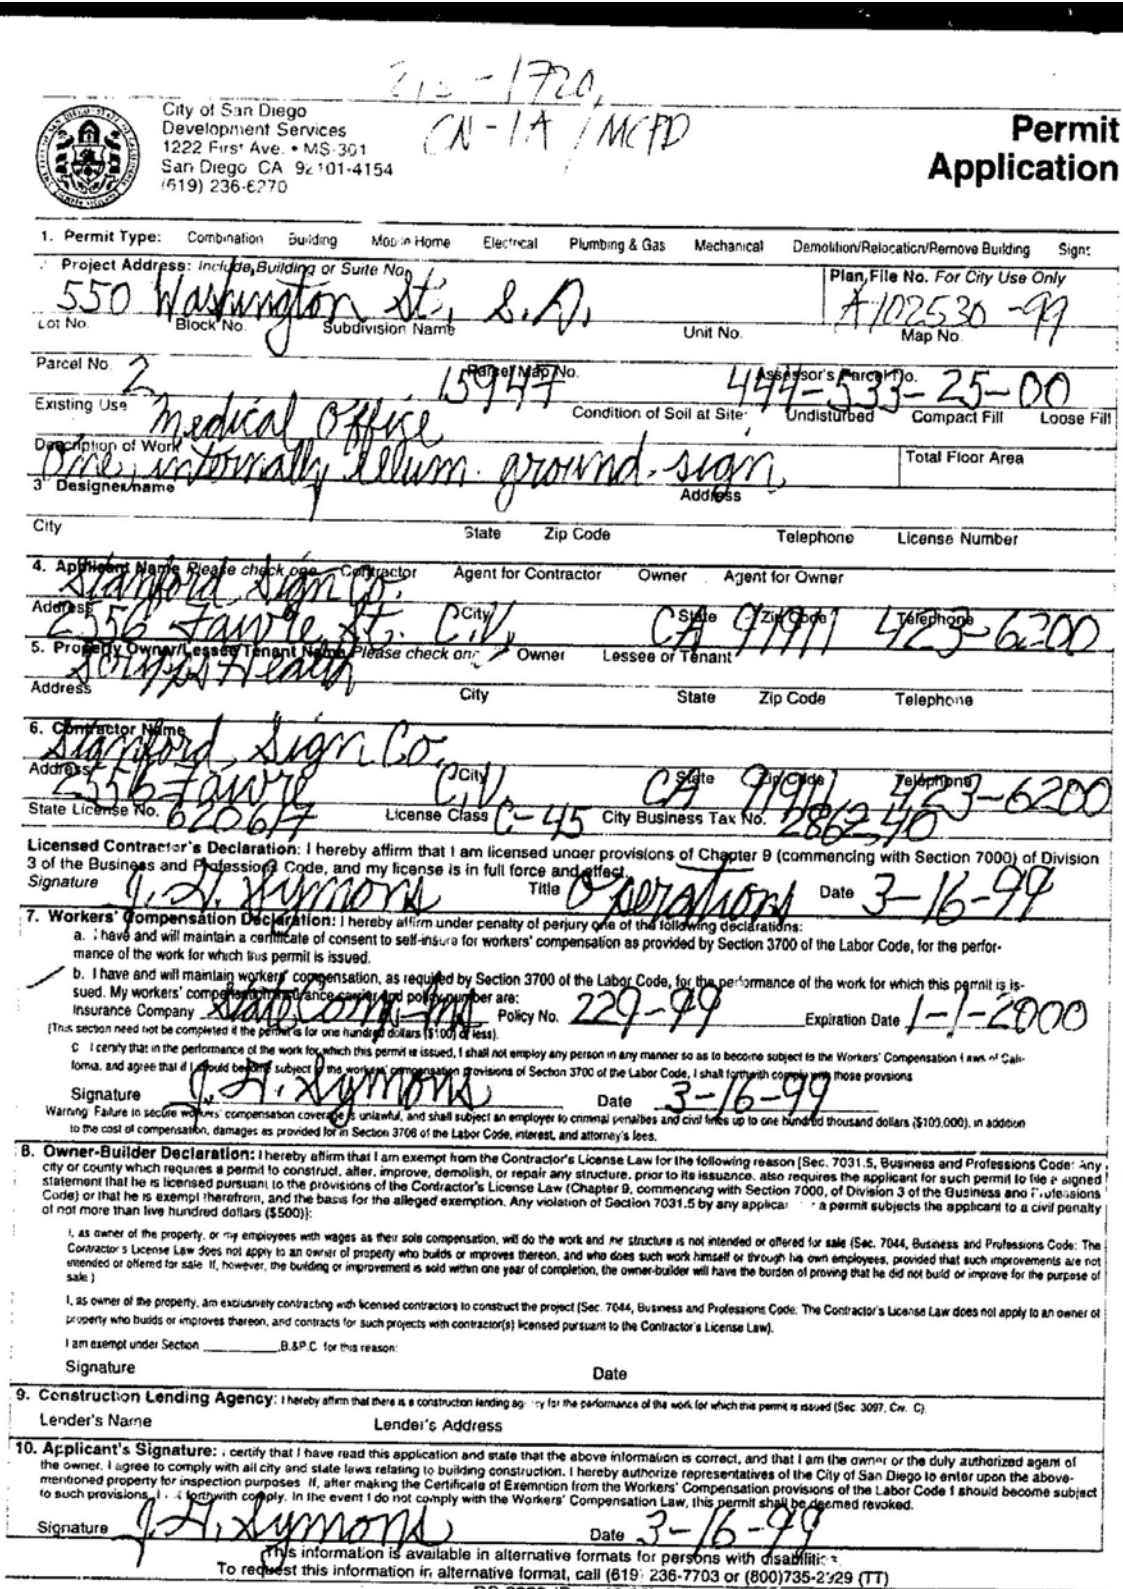 -1720,
CN-1A / MCPD
City of San Diego
Development Services
1222 First Ave. • MS-301
San Diego CA 92101-4154
(619) 236-6270
Permit
Application
1. Permit Type: Combination Building Mobile Home Electrical Plumbing & Gas Mechanical Demolition/Relocation/Remove Building Signs
Project Address: Include Building or Suite No. Plan File No. For City Use Only
550 Washington St., S.D. A-102530-99
Lot No. Block No. Subdivision Name Unit No. Map No.
Parcel No. 2 Parcel Map No. 15947 Assessor's Parcel No. 444-533-25-00
Existing Use Medical Office Condition of Soil at Site: Undisturbed Compact Fill Loose Fill
Description of Work Total Floor Area
One, internally illum. ground sign
3 Designer name Address
City State Zip Code Telephone License Number
4. Applicant Name Please check one Contractor Agent for Contractor Owner Agent for Owner
Stanford Sign Co.
Address City State Zip Code Telephone
2556 Faivre St. C.V. CA 91911 423-6200
5. Property Owner/Lessee Tenant Name Please check one Owner Lessee or Tenant
Scripps Health
Address City State Zip Code Telephone
6. Contractor Name
Stanford Sign Co.
Address City State Zip Code Telephone
2556 Faivre C.V. CA 91911 423-6200
State License No. 620617 License Class C-45 City Business Tax No.
Licensed Contractor's Declaration: I hereby affirm that I am licensed under provisions of Chapter 9 (commencing with Section 7000) of Division
3 of the Business and Professions Code, and my license is in full force and effect.
Signature J. H. Symons Title Operations Date 3-16-99
7. Workers' Compensation Declaration: I hereby affirm under penalty of perjury one of the following declarations:
a. I have and will maintain a certificate of consent to self-insure for workers' compensation as provided by Section 3700 of the Labor Code, for the perfor-
mance of the work for which this permit is issued.
b. I have and will maintain workers' compensation, as required by Section 3700 of the Labor Code, for the performance of the work for which this permit is is-
sued. My workers' compensation insurance carrier and policy number are:
Insurance Company State Comp Policy No. 229-99 Expiration Date 1-1-2000
(This section need not be completed if the permit is for one hundred dollars ($100) or less).
C I certify that in the performance of the work for which this permit is issued, I shall not employ any person in any manner so as to become subject to the Workers' Compensation Laws of Cali-
fornia, and agree that if I should become subject to the workers' compensation provisions of Section 3700 of the Labor Code, I shall forthwith comply with those provisions
Signature J. H. Symons Date 3-16-99
Warning: Failure to secure workers' compensation coverage is unlawful, and shall subject an employer to criminal penalties and civil fines up to one hundred thousand dollars ($100,000), in addition
to the cost of compensation, damages as provided for in Section 3706 of the Labor Code, interest, and attorney's fees.
8. Owner-Builder Declaration: I hereby affirm that I am exempt from the Contractor's License Law for the following reason [Sec. 7031.5, Business and Professions Code: Any
city or county which requires a permit to construct, alter, improve, demolish, or repair any structure, prior to its issuance, also requires the applicant for such permit to file a signed
statement that he is licensed pursuant to the provisions of the Contractor's License Law (Chapter 9, commencing with Section 7000, of Division 3 of the Business and Professions
Code) or that he is exempt therefrom, and the basis for the alleged exemption. Any violation of Section 7031.5 by any applicant a permit subjects the applicant to a civil penalty
of not more than five hundred dollars ($500)]:
I, as owner of the property, or my employees with wages as their sole compensation, will do the work and the structure is not intended or offered for sale (Sec. 7044, Business and Professions Code: The
Contractor's License Law does not apply to an owner of property who builds or improves thereon, and who does such work himself or through his own employees, provided that such improvements are not
intended or offered for sale. If, however, the building or improvement is sold within one year of completion, the owner-builder will have the burden of proving that he did not build or improve for the purpose of
sale.)
I, as owner of the property, am exclusively contracting with licensed contractors to construct the project (Sec. 7044, Business and Professions Code: The Contractor's License Law does not apply to an owner of
property who builds or improves thereon, and contracts for such projects with contractor(s) licensed pursuant to the Contractor's License Law).
I am exempt under Section ________, B.&P.C. for this reason:
Signature Date
9. Construction Lending Agency: I hereby affirm that there is a construction lending agency for the performance of the work for which this permit is issued (Sec. 3097, Civ. C).
Lender's Name Lender's Address
10. Applicant's Signature: I certify that I have read this application and state that the above information is correct, and that I am the owner or the duly authorized agent of
the owner. I agree to comply with all city and state laws relating to building construction. I hereby authorize representatives of the City of San Diego to enter upon the above-
mentioned property for inspection purposes. If, after making the Certificate of Exemption from the Workers' Compensation provisions of the Labor Code I should become subject
to such provisions, I forthwith comply. In the event I do not comply with the Workers' Compensation Law, this permit shall be deemed revoked.
Signature J. H. Symons Date 3-16-99
This information is available in alternative formats for persons with disabilities.
To request this information in alternative format, call (619) 236-7703 or (800)735-2929 (TT)